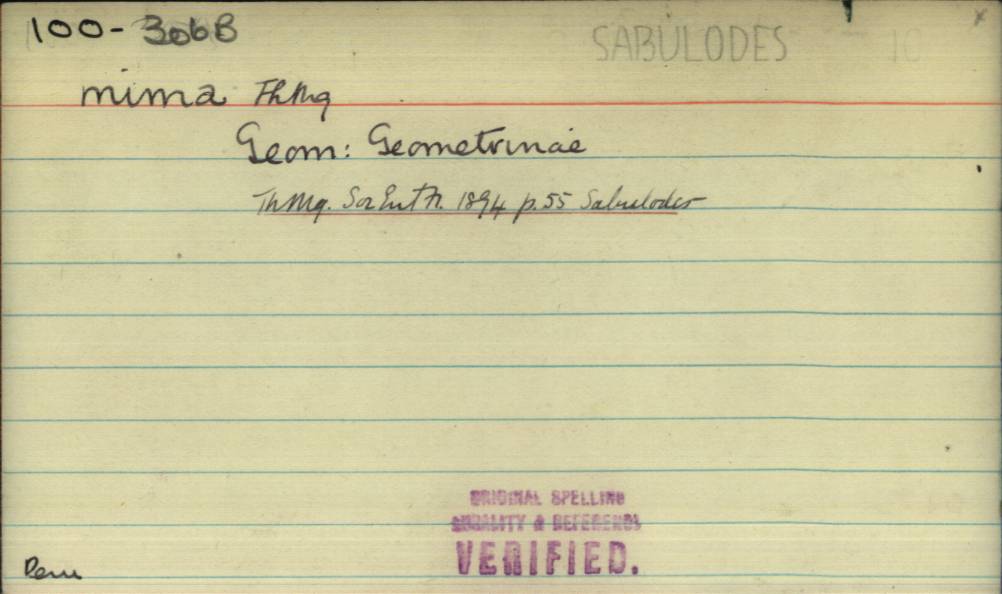 100-306B
SABULODES 10
mima ThMg
Geom: Geometrinae
Th Mg. Soc Ent Fr. 1894 p.55 Sabulodes
ORIGINAL SPELLING
LOCALITY & REFERENCE
VERIFIED.
Peru